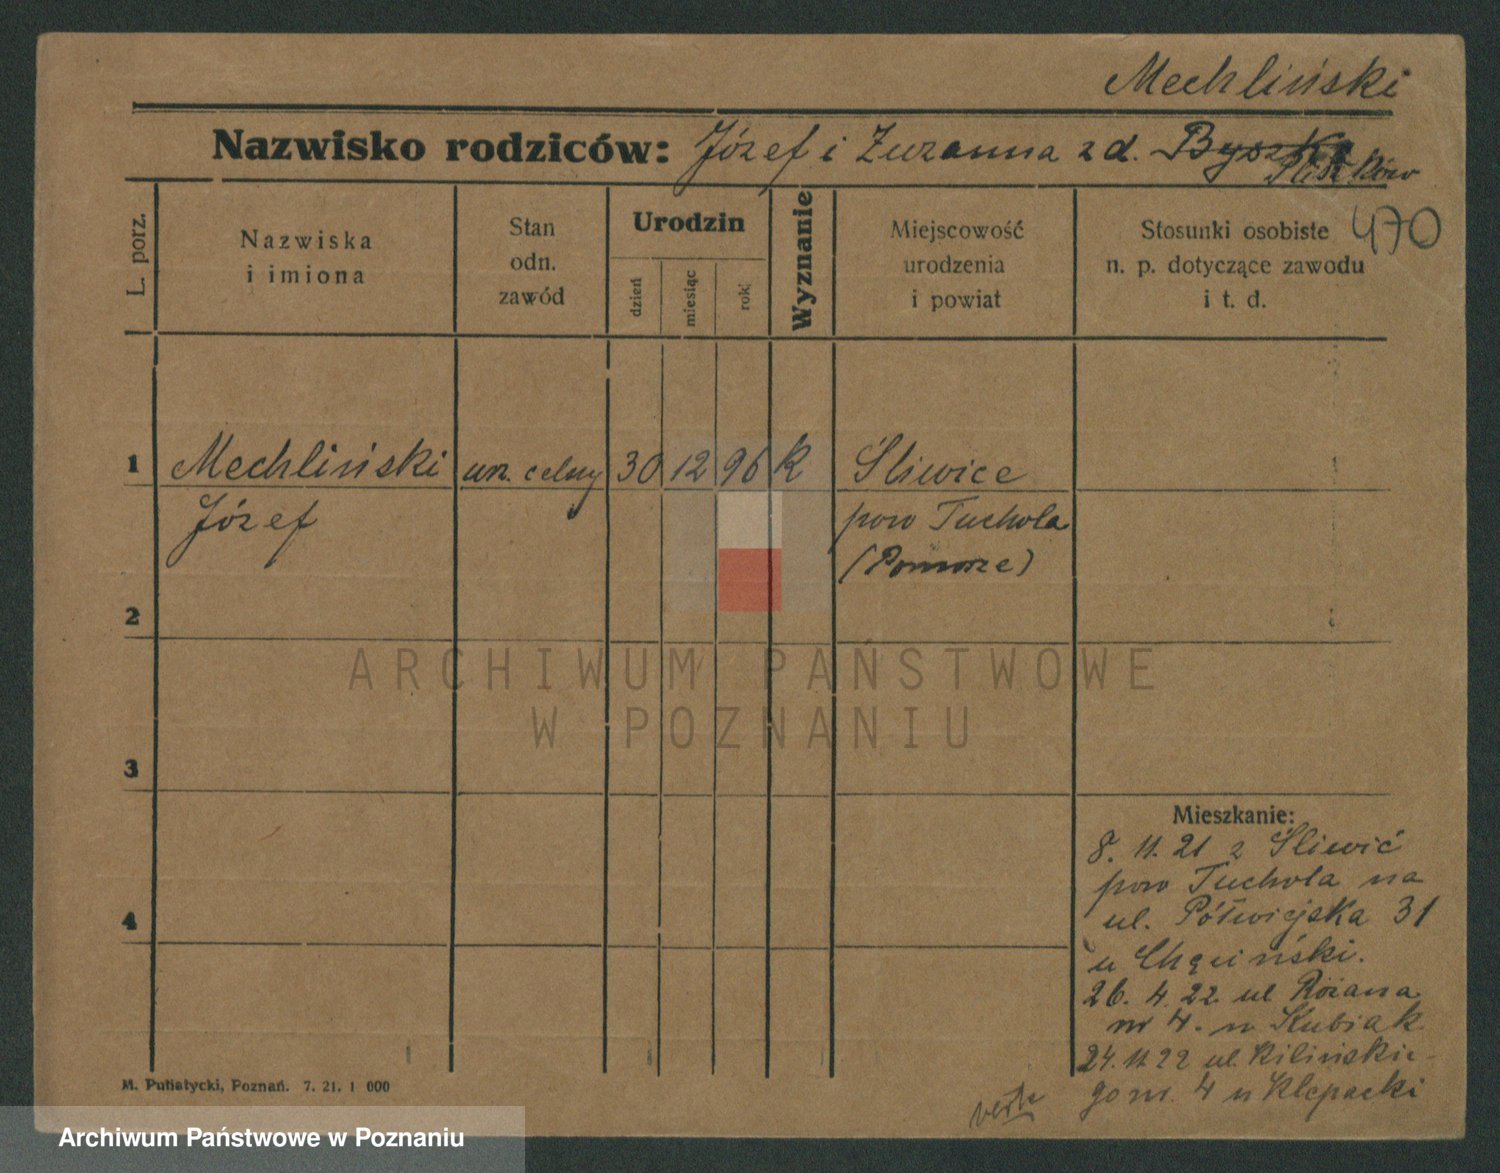 Mechliński
Nazwisko rodziców: Józef i Zuzanna z d.
470
L. porz.
Nazwiska
i imiona
Stan
odn.
zawód
Urodzin
dzień
miesiąc
rok
Wyznanie
Miejscowość
urodzenia
i powiat
Stosunki osobiste
n. p. dotyczące zawodu
i t. d.
1 Mechliński urz. celny 30 12 96 K Śliwice
Józef pow Tuchola
(Pomorze)
2
ARCHIWUM PAŃSTWOWE
W POZNANIU
3
Mieszkanie:
8. 11. 21 z Śliwić
pow Tuchola na
4
ul. Półwiejska 31
u Chęciński.
26. 4. 22. ul Różana
nr 4. u Kubiak
24. 11 22 ul. Kilińskie-
go nr. 4 u Klepacki
verte
M. Putiatycki, Poznań. 7. 21. 1 000
Archiwum Państwowe w Poznaniu